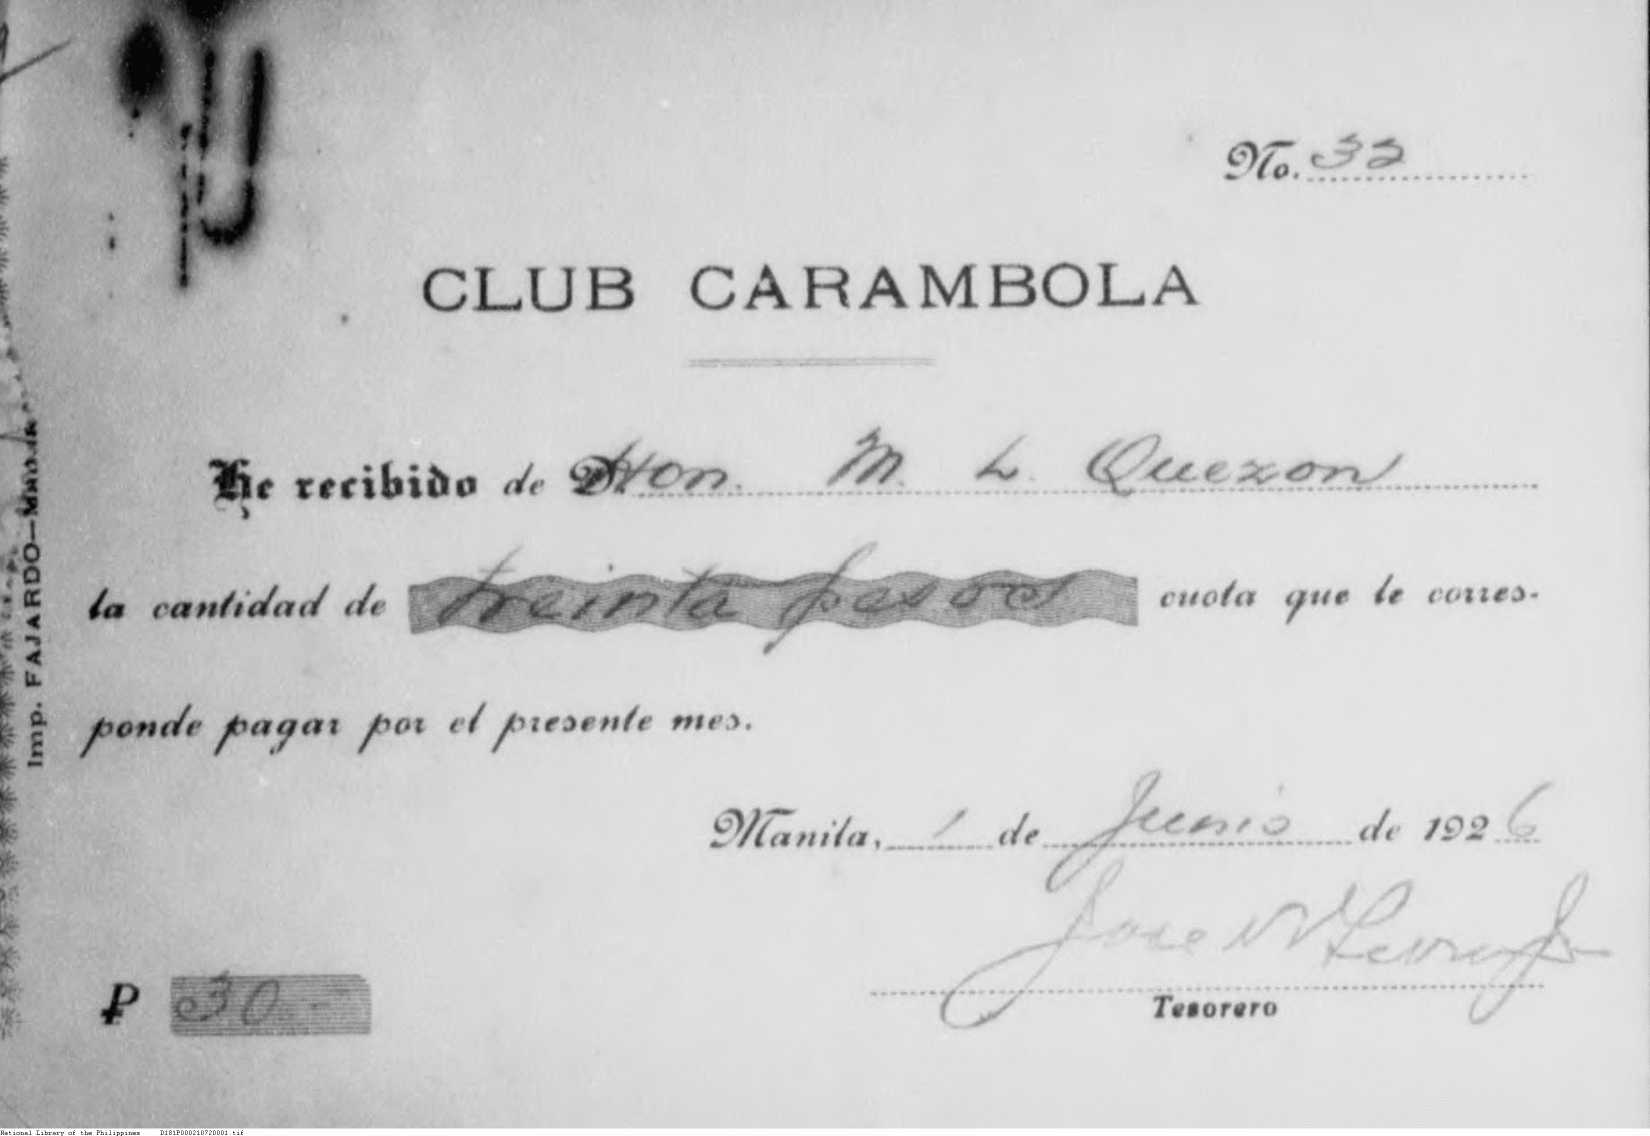 No. 32
CLUB CARAMBOLA
He recibido de D Hon. M. L. Quezon
la cantidad de treinta pesos cuota que le corres-
ponde pagar por el presente mes.
Manila, 1 de Junio de 1926
Jose
Tesorero
₱ 30 -
Imp. FAJARDO—MANILA
National Library of the Philippines D181P000210720001.tif